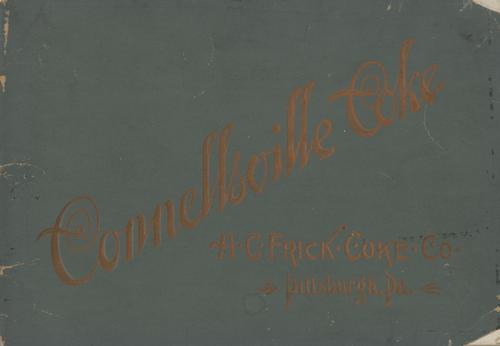 Connellsville Coke
H·C·FRICK·COKE·CO·
Pittsburgh, Pa.